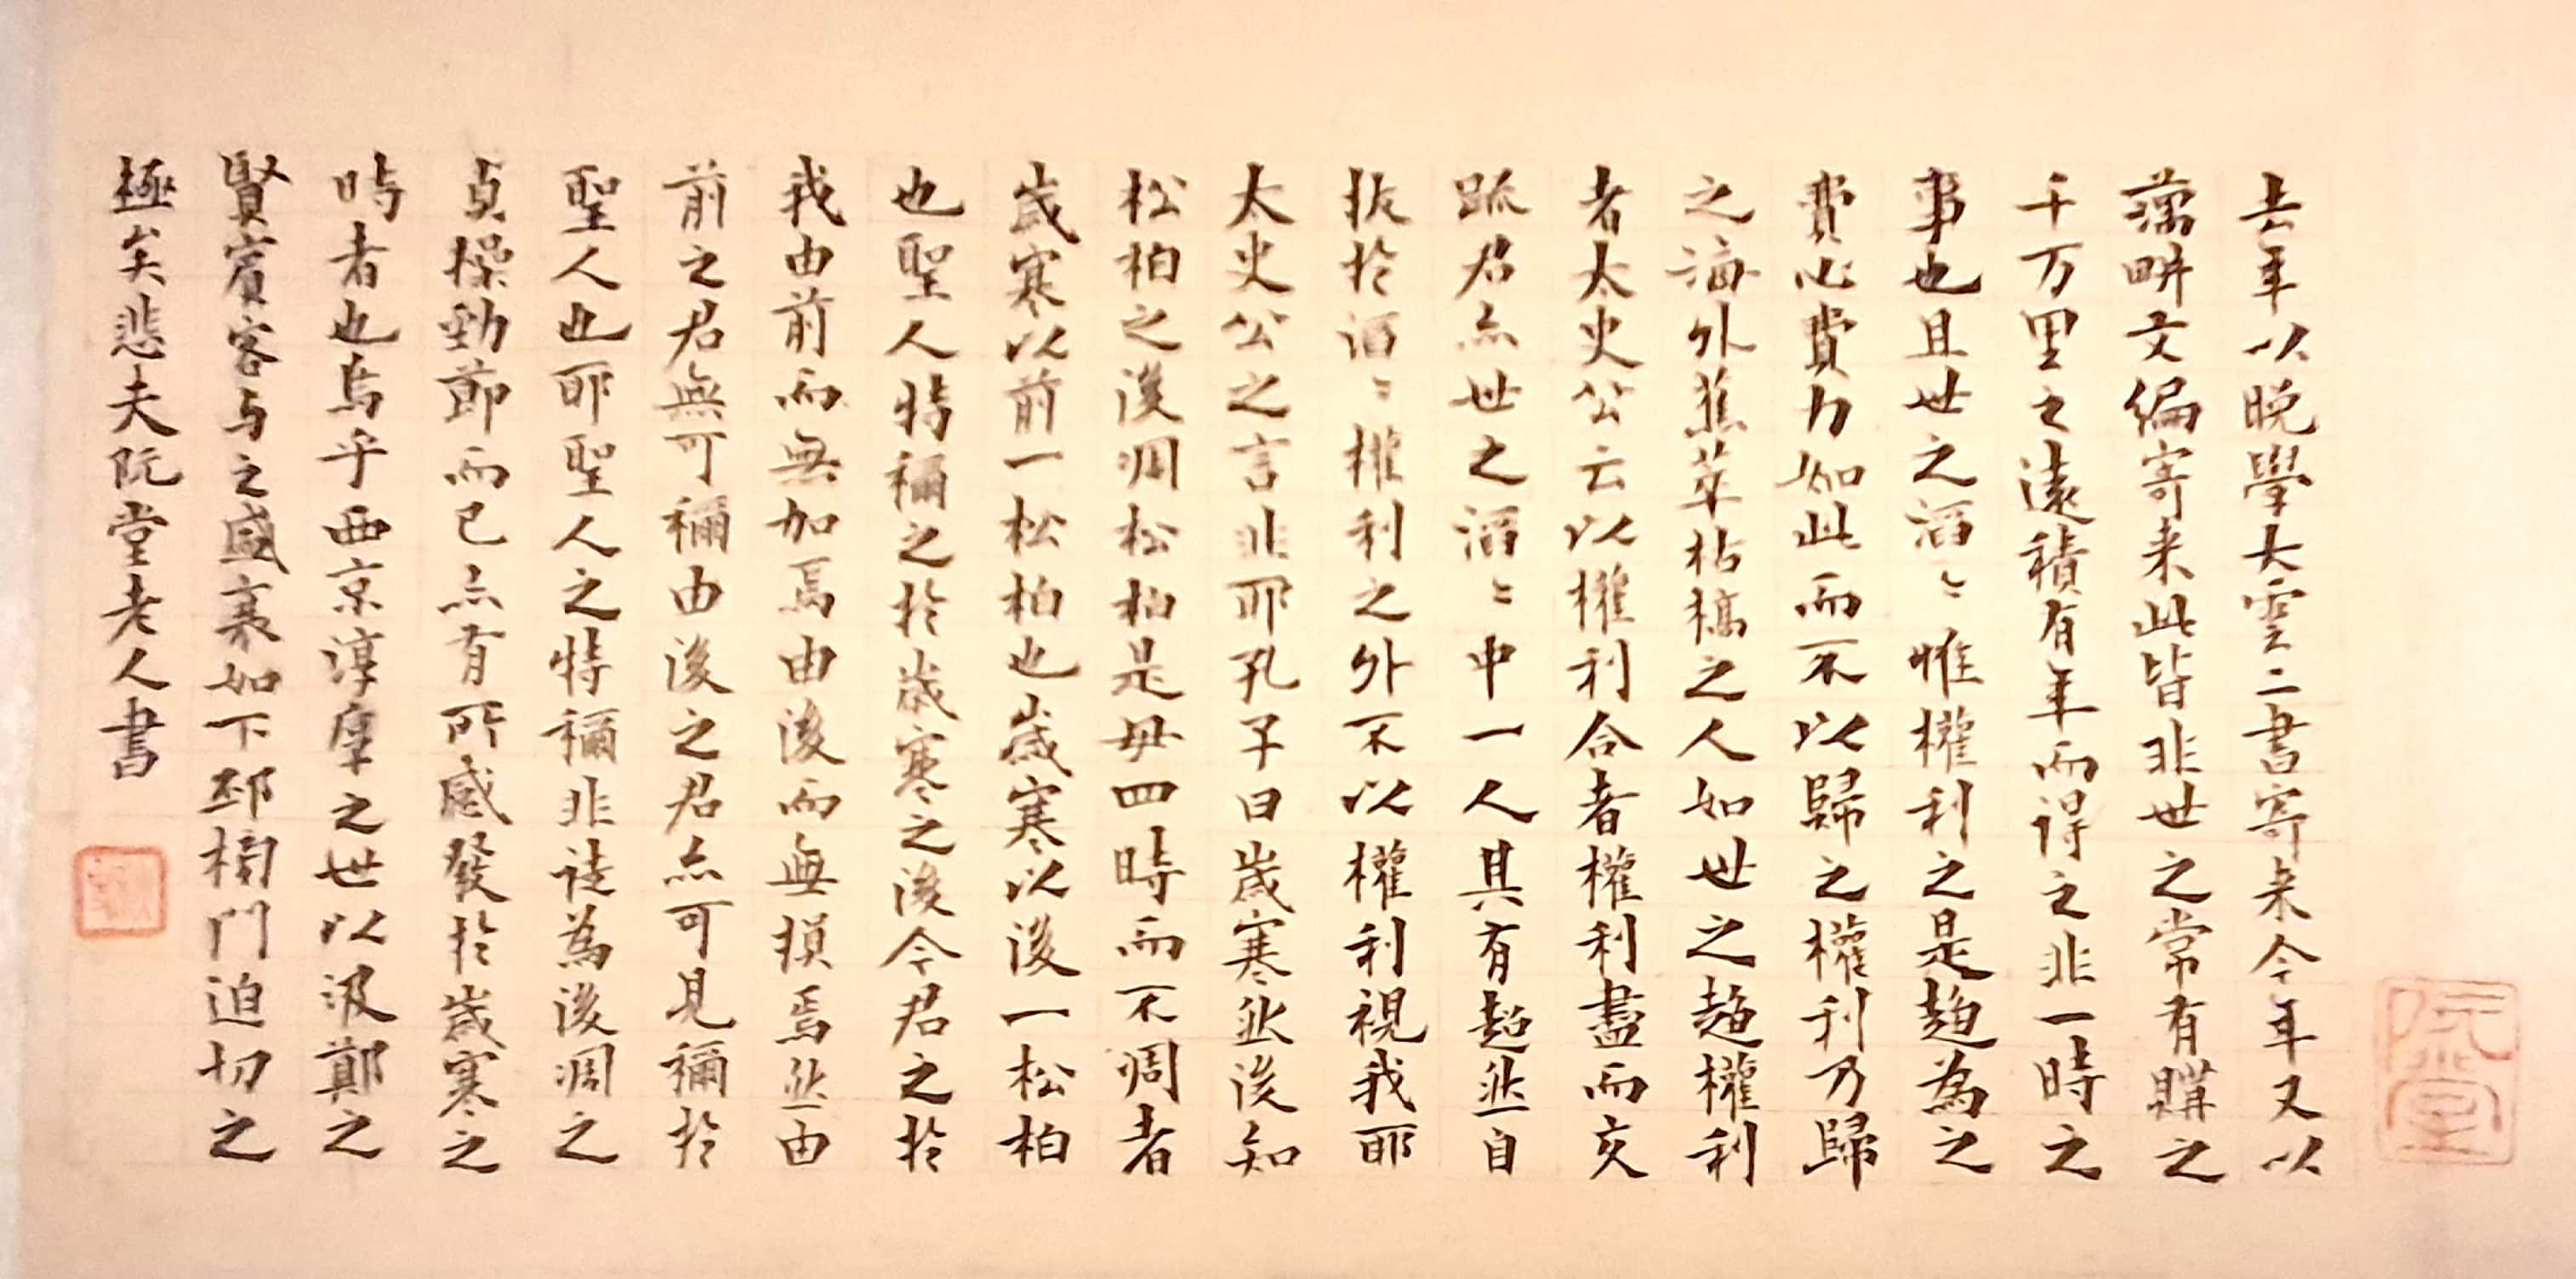 去年以晚學大雲二書寄來今年又以
藕畊文編寄来此皆非世之常有購之
千万里之遠積有年而得之非一時之
事也且世之滔〻惟權利之是趨為之
費心費力如此而不以歸之權利乃歸
之海外蕉萃枯槁之人如世之趨權利
者太史公云以權利合者權利盡而交
踈君亦世之滔〻中一人其有超然自
拔扵滔〻權利之外不以權利視我耶
太史公之言非耶孔子曰歲寒然後知
松柏之後凋松柏是毋四時而不凋者
歲寒以前一松柏也歲寒以後一松柏
也聖人特稱之扵歲寒之後今君之扵
我由前而無加焉由後而無損焉然由
前之君無可稱由後之君亦可見稱扵
聖人也耶聖人之特稱非徒為後凋之
貞操勁節而已亦有所感發扵歲寒之
時者也烏乎西京淳厚之世以汲鄭之
賢賓客与之盛衰如下邳榜門迫切之
極矣悲夫阮堂老人書
阮堂